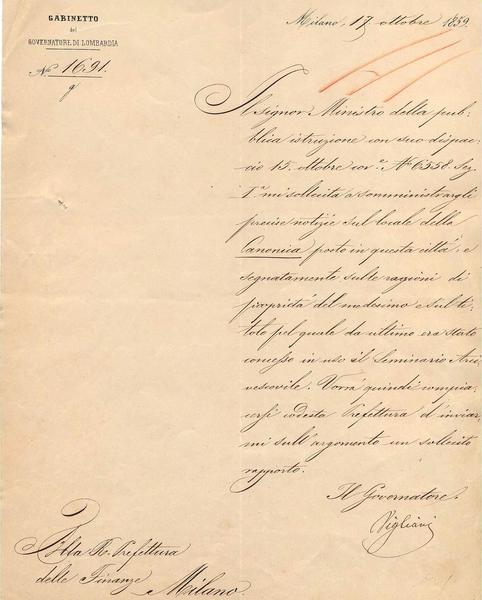 GABINETTO
del
GOVERNATORE DI LOMBARDIA
N.º 1691.
g
Milano, 17 ottobre 1859.
Il signor Ministro della pub-
blica istruzione con suo dispac-
cio 15. ottobre corr.e N.º 6558. Sez.
I.ª mi sollecita a somministrargli
precise notizie sul locale della
Canonica posto in questa città, e
segnatamente sulle ragioni di
proprietà del medesimo e sul ti-
tolo pel quale da ultimo era stato
concesso in uso il Seminario Arci-
vescovile. Vorrà quindi compia-
cersi codesta Prefettura d'inviar-
mi sull'argomento un sollecito
rapporto.
Il Governatore.
Vigliani
Alla R. Prefettura
delle Finanze Milano.